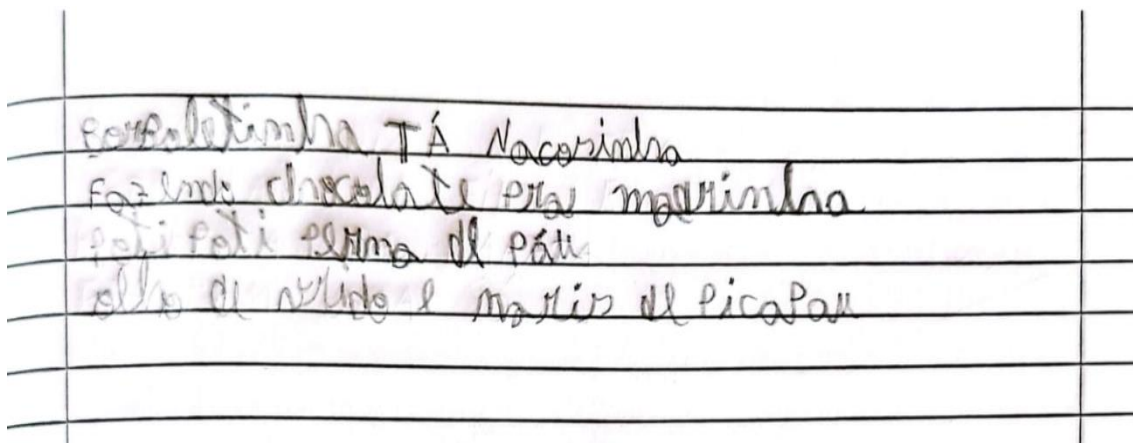 borboletinha TÁ Nacosinha
Fazendo chocolate pra madrinha
poti poti perna de páu
olho de vilido e nariz de PicaPau